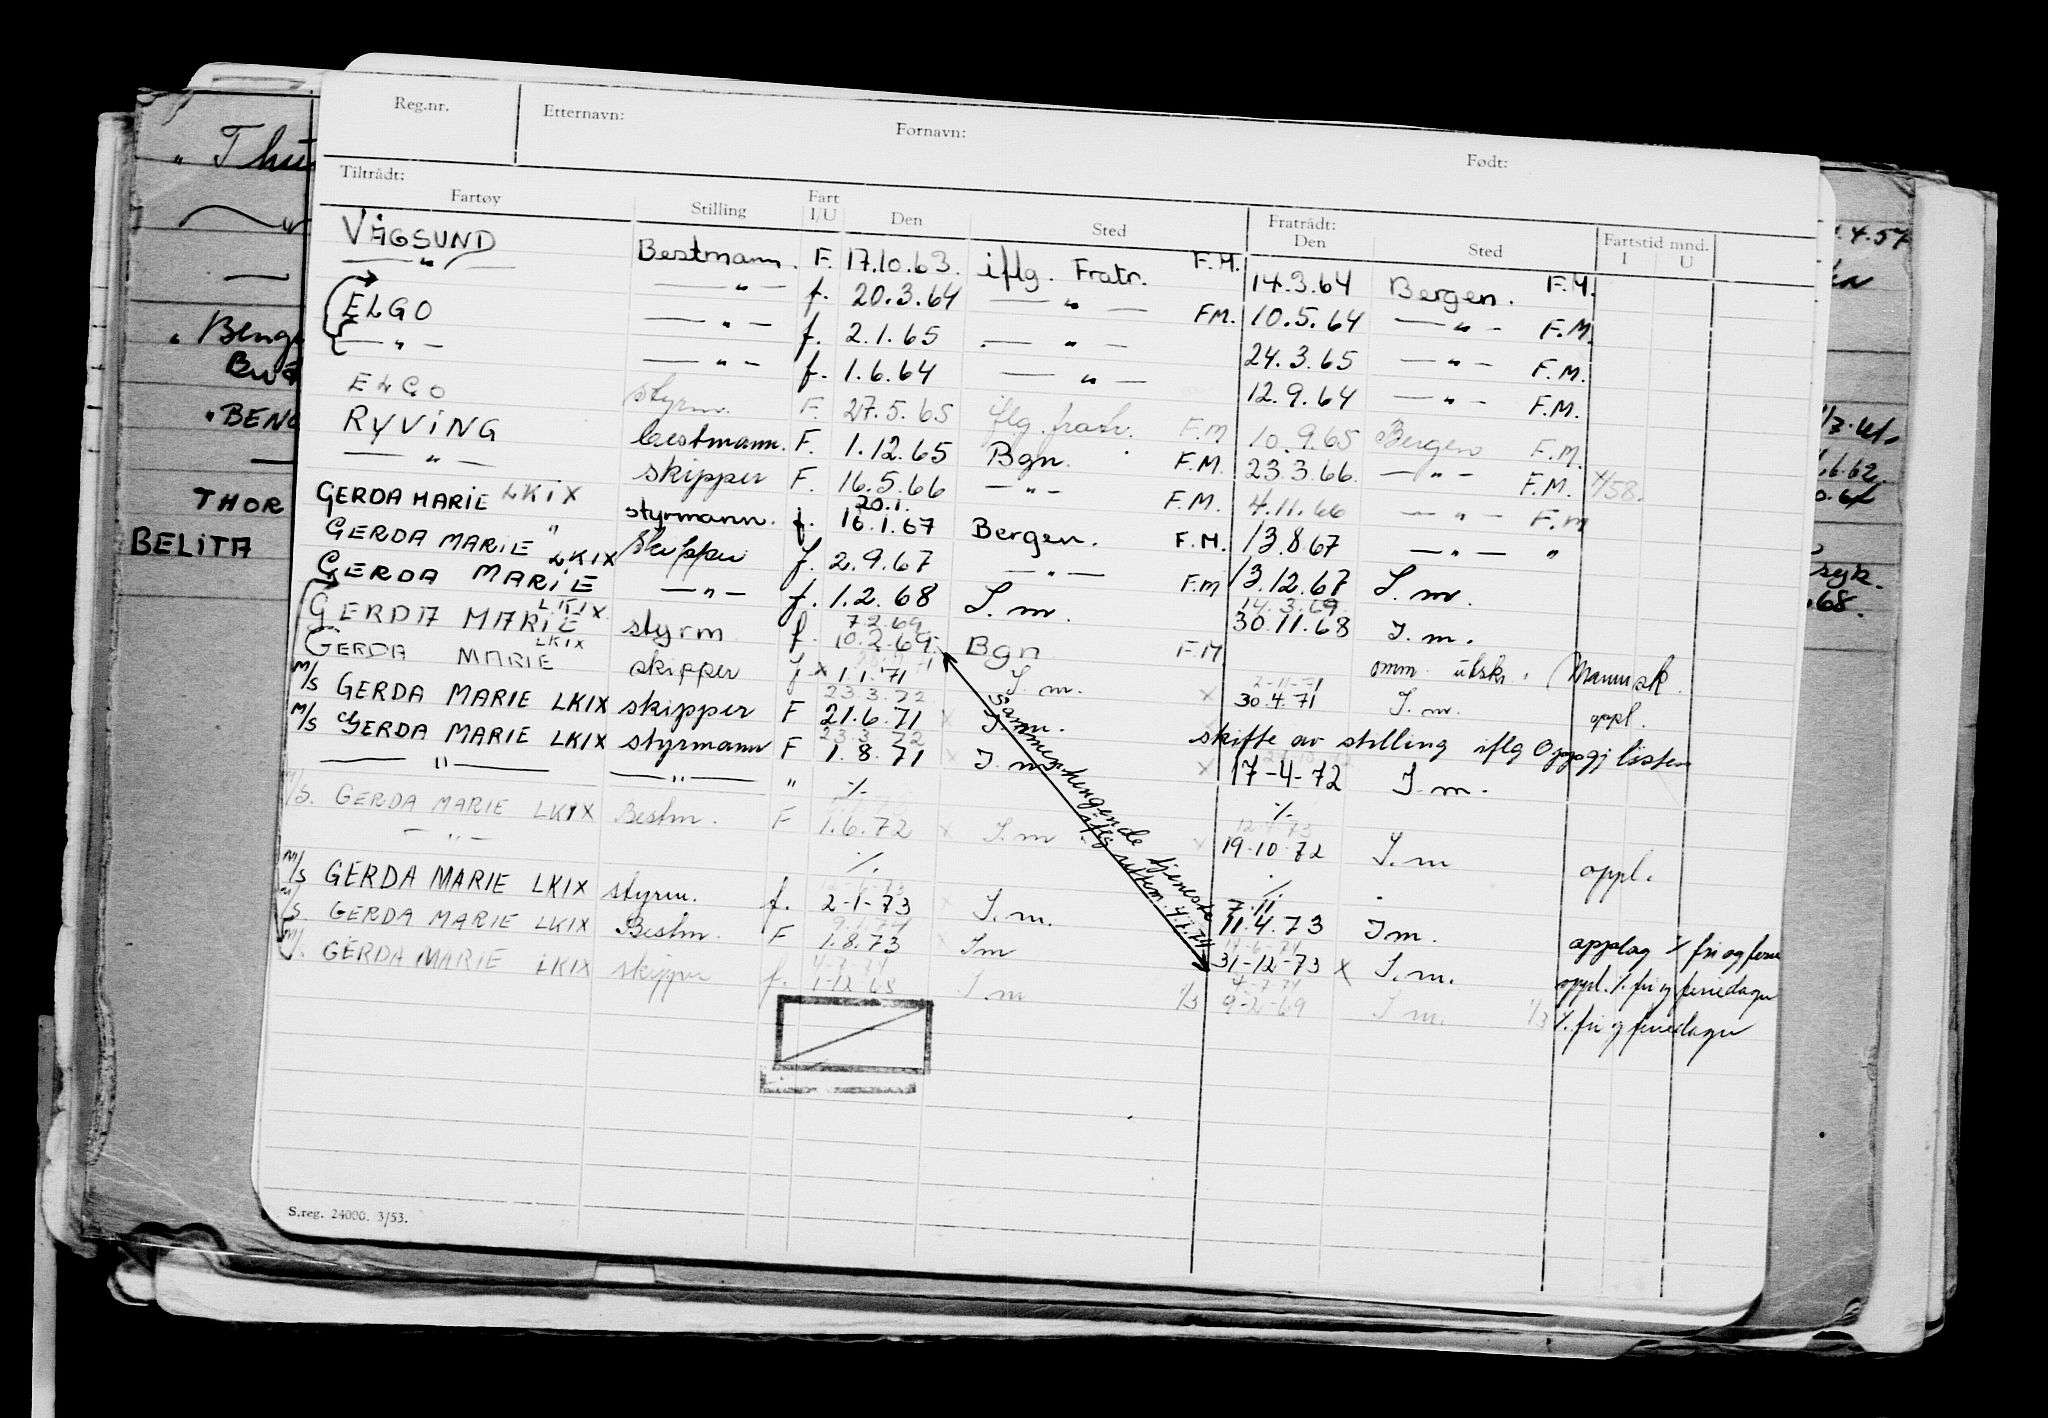 Reg.nr. Etternavn: Fornavn: Født:
Tiltrådt: Fratrådt:
Fartøy Stilling Fart I/U Den Sted Den Sted Fartstid mnd. I U
VÅGSUND Bestmann. F. 17.10.63. iflg. Fratr. F.M. 14.3.64 Bergen. F.M.
— " — — " — f. 20.3.64 — " — FM. 10.5.64 — " — F.M.
ELGO — " — f. 2.1.65 — " — 24.3.65 — " — F.M.
— " — — " — f. 1.6.64 — " — 12.9.64 — " — F.M.
ELGO styrm. F. 27.5.65 iflg. fratr. F.M 10.9.65 Bergen F.M.
RYVING bestmann. F. 1.12.65 Bgn. F.M. 23.3.66. — " — F.M. 4/58.
— " — skipper F. 16.5.66 — " — F.M. 4.11.66 — " — F.M
GERDA MARIE LKIX styrmann. f. 20.1. 16.1.67 Bergen. F.M. 13.8.67 — " — "
GERDA MARIE " skipper f. 2.9.67 — " — F.M 13.12.67 I.m.
GERDA MARIE LKIX — " — f. 1.2.68 I.m. 14.3.69. 30.11.68 I.m.
GERDA MARIE LKIX styrm f. 7.2.69 10.2.69. Bgn F.M omm. utskr. Mannsk.
GERDA MARIE LKIX skipper f x 1.1.71 I.m. x 2-11-71 30.4.71 I.m. oppl.
M/S GERDA MARIE LKIX skipper F 23.3.72 21.6.71 x I.m. skifte av stilling iflg Oppgj listen
M/S GERDA MARIE LKIX styrmann F 23.3.72 1.8.71 x I.m. x 17-4-72 I.m.
— " — — " — " ./. ./.
M/S. GERDA MARIE LKIX Bestm. F 1.6.72 x I.m x 12.4.73 19.10.72 I.m oppl.
— " — ./. ./.
M/S GERDA MARIE LKIX styrm. f. 2-1-73 x I.m. 7.11. 11.4.73 Im. opplag ./. fri og ferie
M/S. GERDA MARIE LKIX Bestm. F 1.8.73 x Im 31-12-73 x I.m. oppl. ./. fri og feriedager
M/S. GERDA MARIE LKIX skipper f. 4-7-74 1-12-68 I.m 1/3 4-7-74 9-2-69 I.m. 1/3 ./. fri og feriedager
Sammenhengende tjeneste
iflg uttem. 4.7.74
S.reg. 24000. 3/53.
" BENG
THOR
BELITA
4.57
syk.
68.